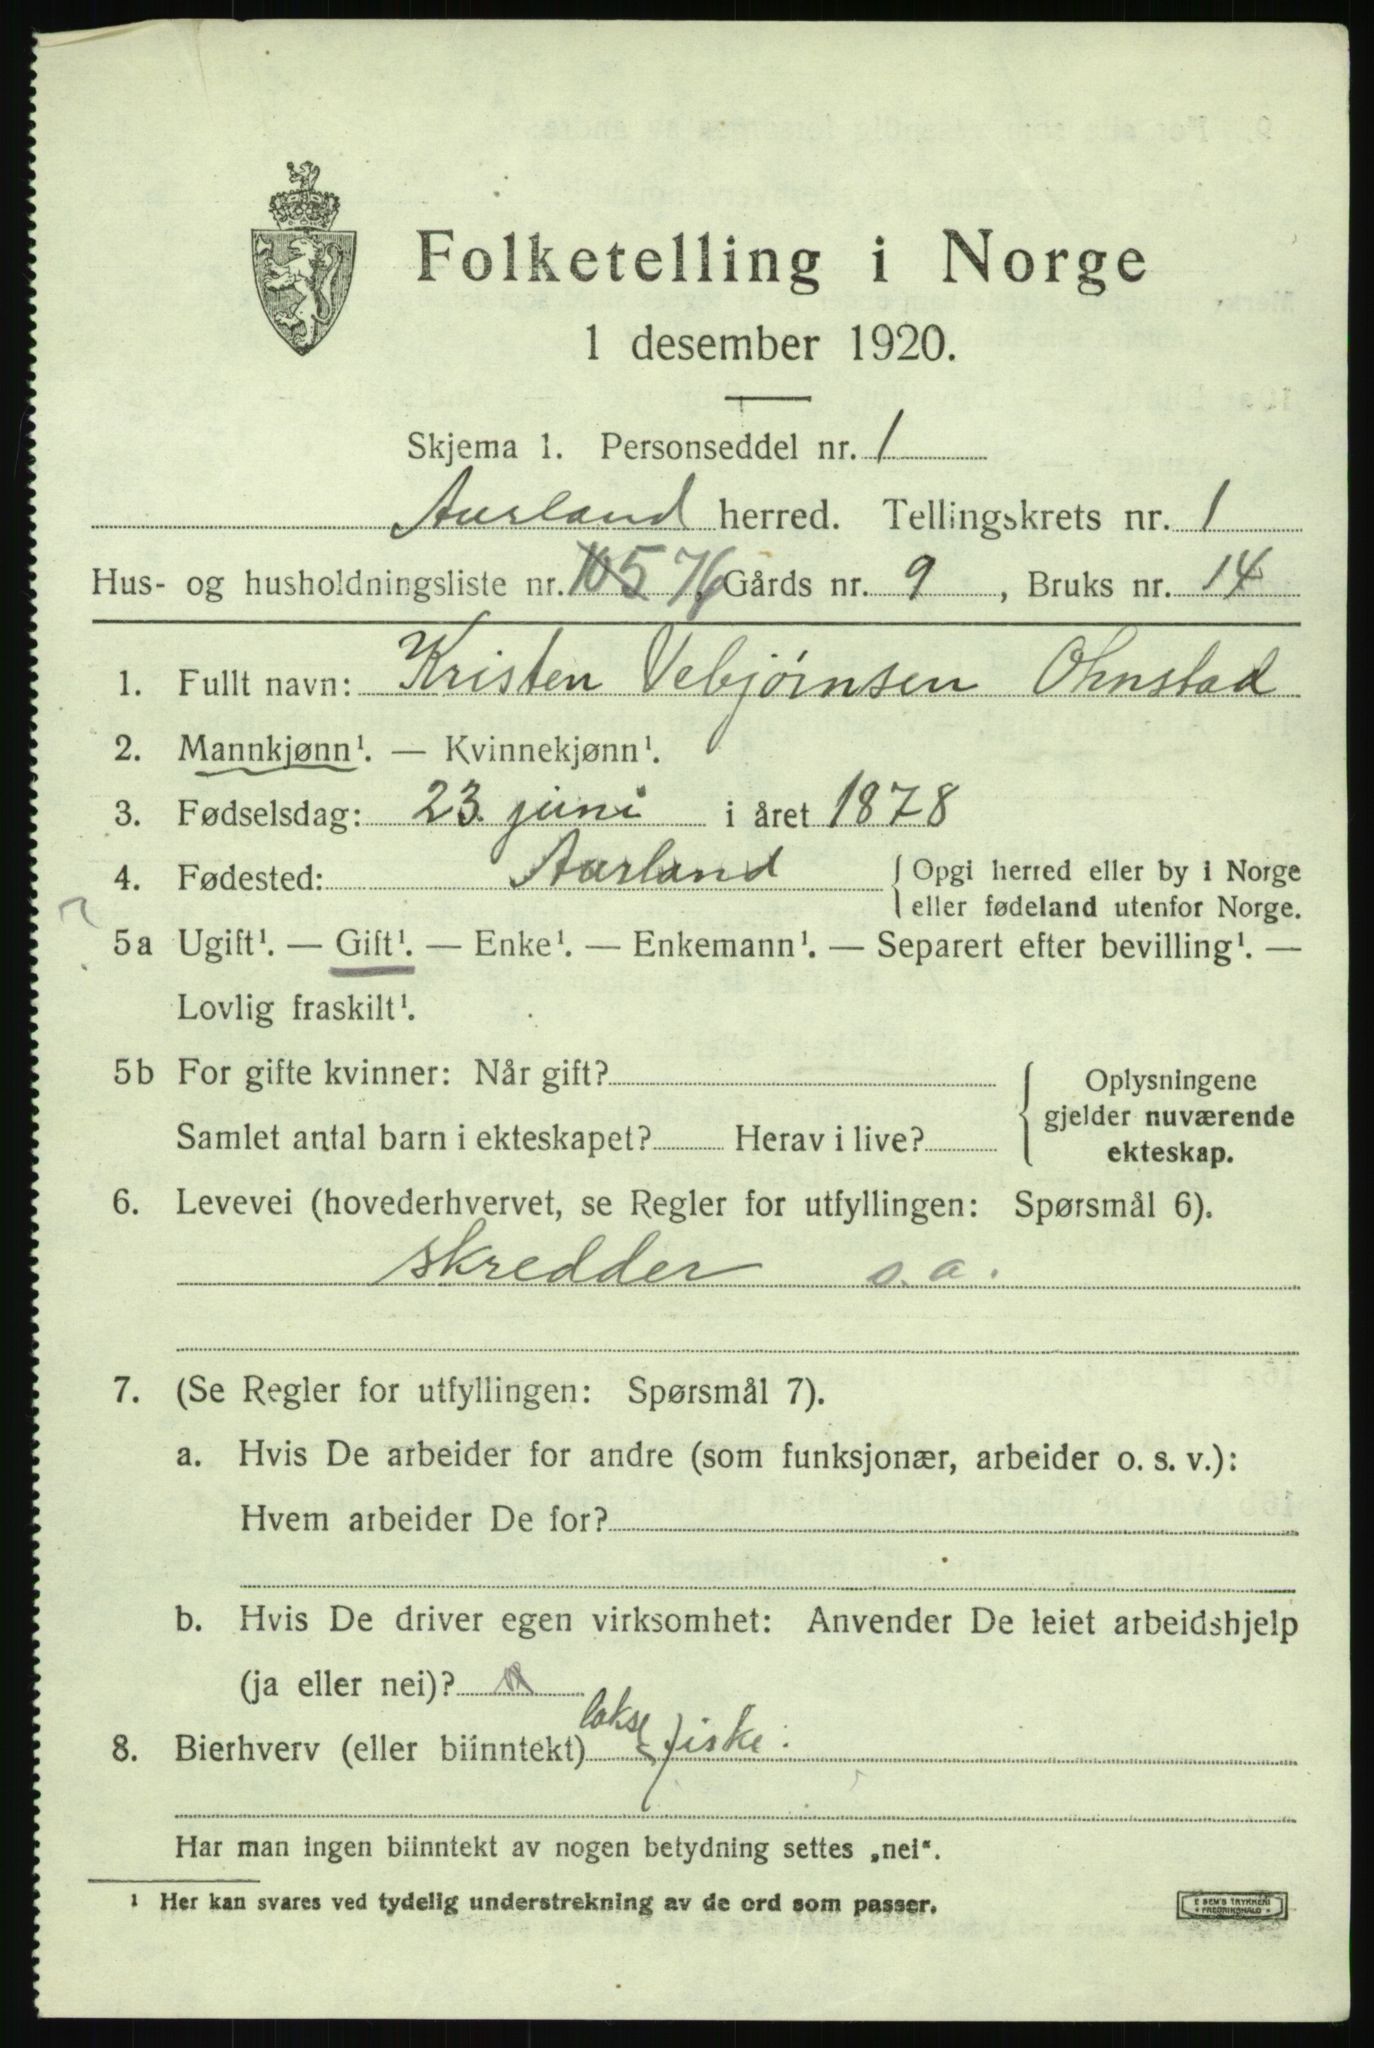 Folketelling i Norge
1 desember 1920.
Skjema 1. Personseddel nr. 1
Aurland herred. Tellingskrets nr. 1
Hus- og husholdningsliste nr. 105 76, Gårds nr. 9, Bruks nr. 14
1. Fullt navn: Kristen Vebjørnsen Ohnstad
2. Mannkjønn¹. — Kvinnekjønn¹.
3. Fødselsdag: 23. juni i året 1878
4. Fødested: Aurland { Opgi herred eller by i Norge
eller fødeland utenfor Norge.
5a Ugift¹. — Gift¹. — Enke¹. — Enkemann¹. — Separert efter bevilling¹. —
Lovlig fraskilt¹.
5b For gifte kvinner: Når gift?
Samlet antal barn i ekteskapet? Herav i live?
{ Oplysningene
gjelder nuværende
ekteskap.
6. Levevei (hovederhvervet, se Regler for utfyllingen: Spørsmål 6).
skredder s. a.
7. (Se Regler for utfyllingen: Spørsmål 7).
a. Hvis De arbeider for andre (som funksjonær, arbeider o. s. v.):
Hvem arbeider De for?
b. Hvis De driver egen virksomhet: Anvender De leiet arbeidshjelp
(ja eller nei)?
8. Bierhverv (eller biinntekt) laksefiske.
Har man ingen biinntekt av nogen betydning settes „nei“.
¹ Her kan svares ved tydelig understrekning av de ord som passer.
E SEM'S TRYKKERI
FREDRIKSHALD